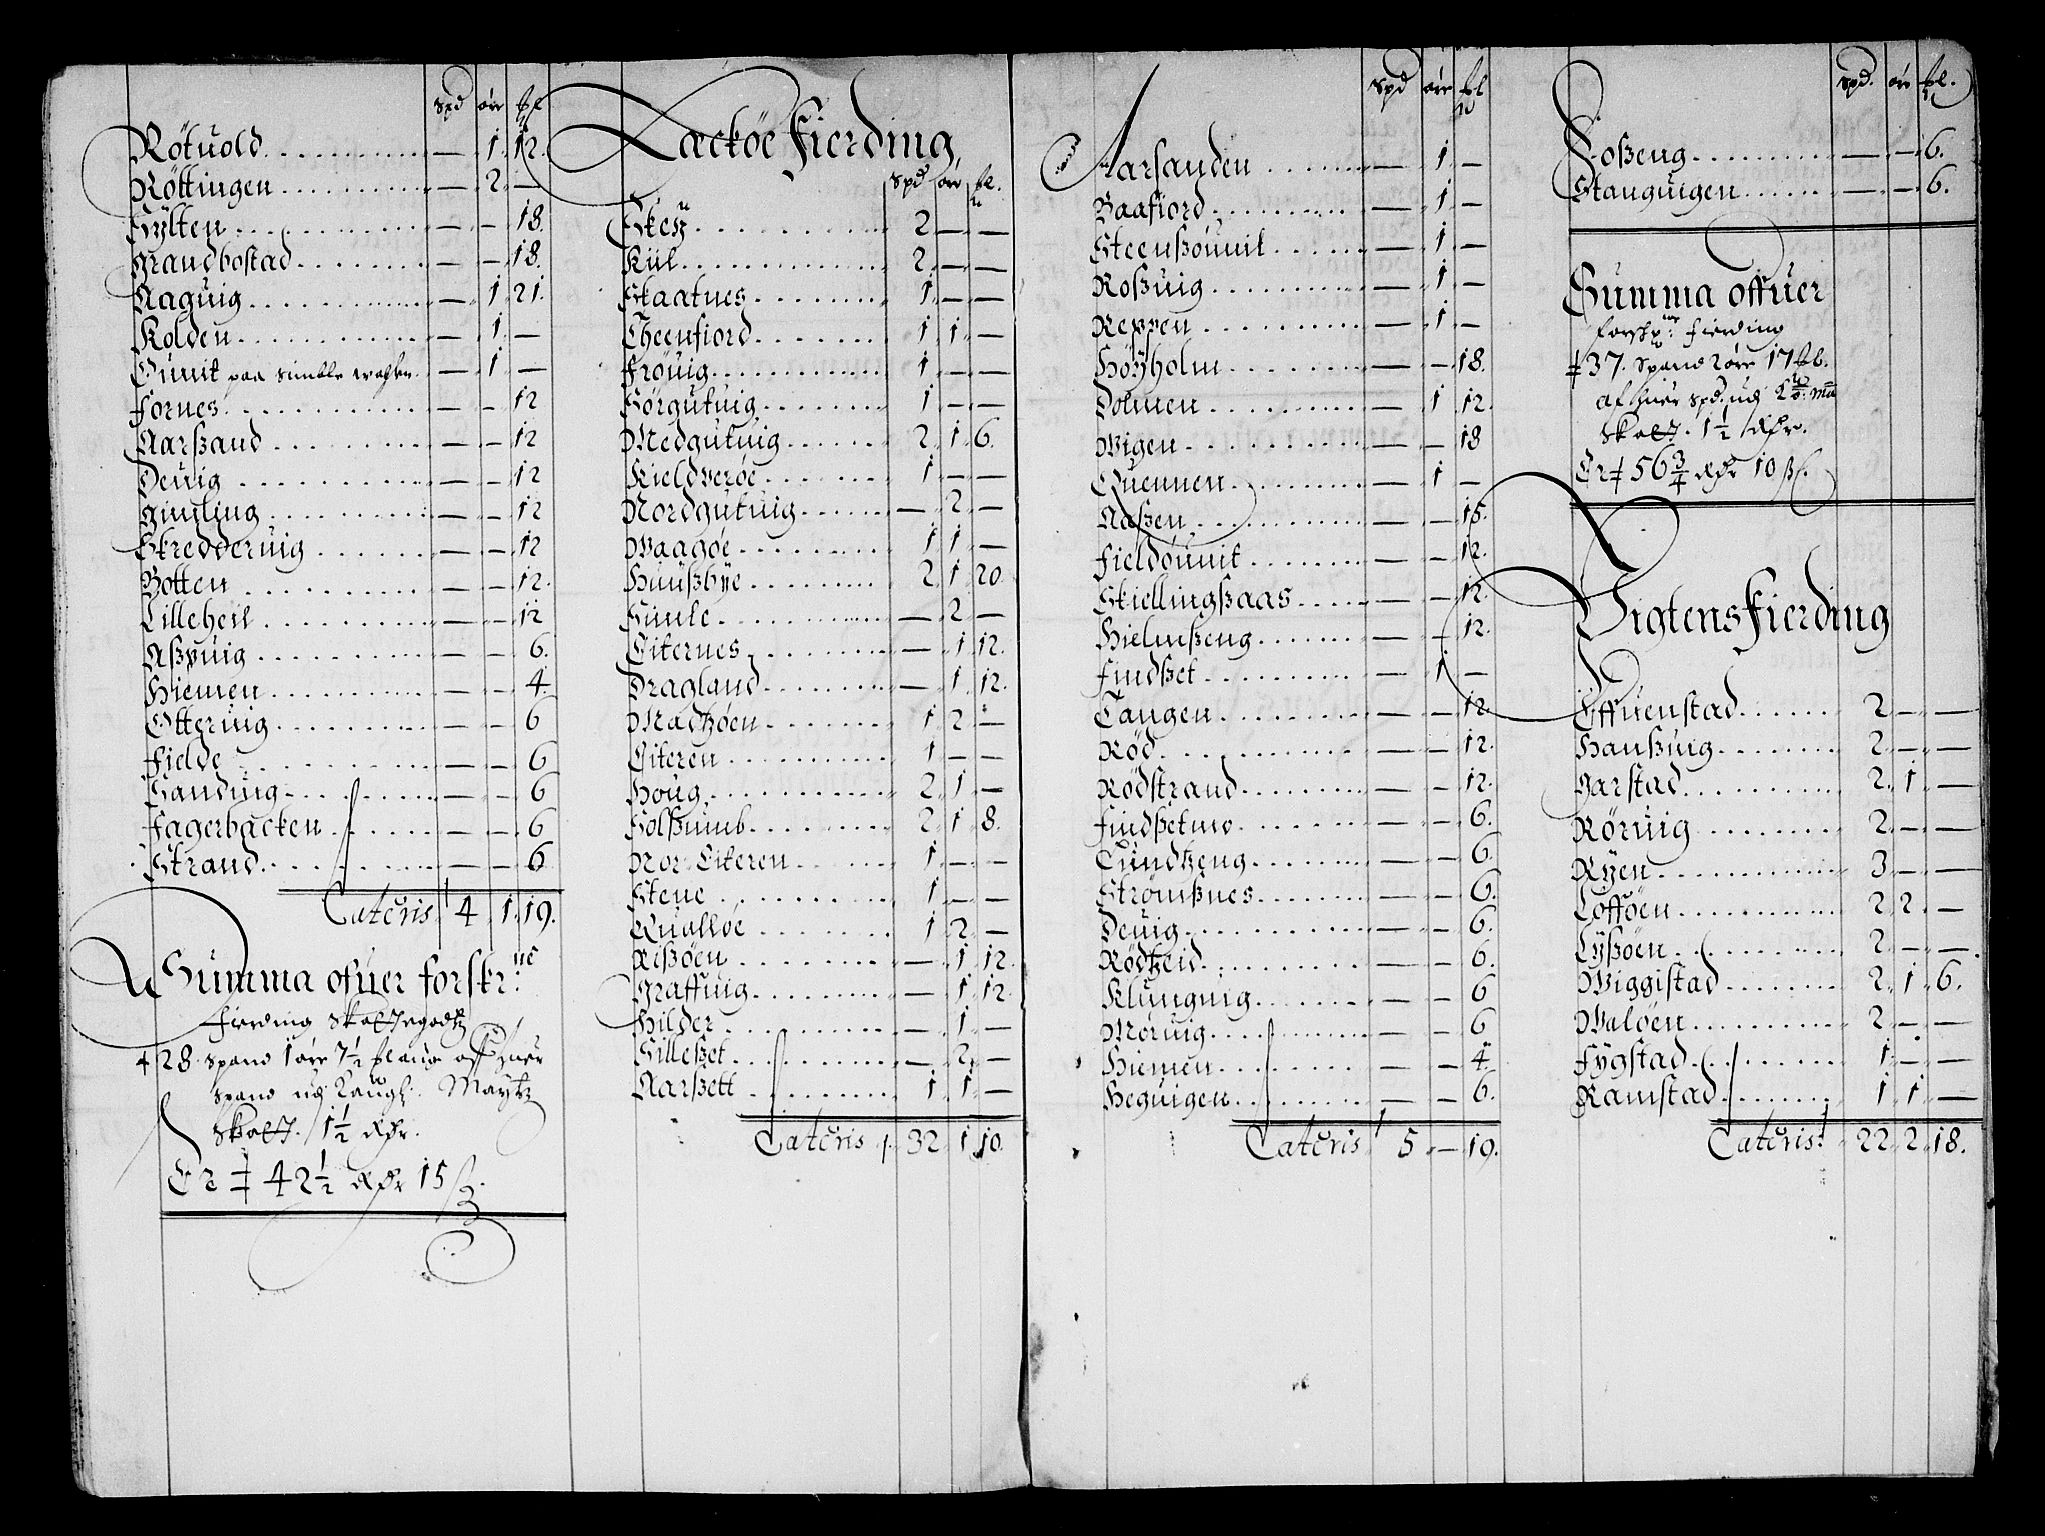 spd ort
Rötuold — 1 12.
Röttingen — 2 —
Sylten — — 18.
Grandbostad — — 18.
Naguig — 1 21.
Kolden — 1 —
— 1 —
Fornes — — 12
Aarßand — — 12
Deuig — — 12
Gimling — — 12
Skredderuig — — 12
Botten — — 12.
Lilleheil — — 12
Aßpuig — — 6.
Hiemen — — 4.
Otteruig — — 6
Fielde — — 6
Sanding — — 6
Fagerbacken — — 6
Strand — — 6
Lateris 4 1. 19.
Summa ofuer forskr:ne
Fierding
28. spand 1 öre 7½
spand
1½ Rdr.
Er 42½ Rdr 15 ß.
Læckøe Fierding
spd ört
2 — —
Kiil 2 — —
Skaatnes 1 — —
Theenfiord 1 1 —
Fröuig 1 — —
Sörgutuig 1 — —
Medgutuig 2 1 6.
Kieldverøe 1 — —
Nordgutuig — 2 —
Waagøe 1 1 —
Huußbye 2 1 20
Simle — 2 —
Eiternes — 1 12.
Dragland — 1 12.
Madtzöen 1 2 —
Eiteren 1 — —
Houg 2 1 —
Solßumb 2 1 8.
Nor: Eiteren 1 — —
Stene 1 — —
Qualløe 1 2 —
Rißöen — 1 12.
Graffuig — 1 12.
Hilder — 1 —
Silleßet — 2 —
Aarßett 1 1 —
Lateris 32 1 10.
spd ört
Aarsanden — 1 —
Baafiord — 1 —
Steenßöunit — 1 —
Roßuig — 1 —
Reppen — 1 —
Höyholm — — 18.
Dolmen — 1 12.
Wigen — — 18
Quennen — 1 —
Naßen — — 15.
Fieldöunit — — 12.
Skiellingßaas — — 12.
Hielmßeng — — 12.
Findßet — 1 —
Tangen — — 12.
Röd — — 12.
Rödstrand — — 12.
Findßetmo — — 6.
Lundtzeng — — 6
Strömßnes — — 6.
Deuig — — 6.
Rödtzeid — — 6.
Klunguig — — 6
Möruig — — 6
Hiemen — — 4.
Heguigen — — 6.
Lateris 5 — 19.
spd. ört
Foßeng — — 6.
Stanguigen — — 6.
Summa offuer
Fierding
37. Spand 2 öre 17
1½ Rdr.
Er 56¾ Rdr 10 ß.
Vigtens Fierding
Effuenstad 2 — —
Hanßuig 2 — —
Garstad 2 1 —
Röruig 2 — —
Ryen 3 — —
Lofföen 2 2 —
Lyßöen 2 — —
Wiggistad 2 1 6.
Walöen 2 — —
Fygstad 1 — —
Ramstad 1 1 —
Lateris 22 2 18.